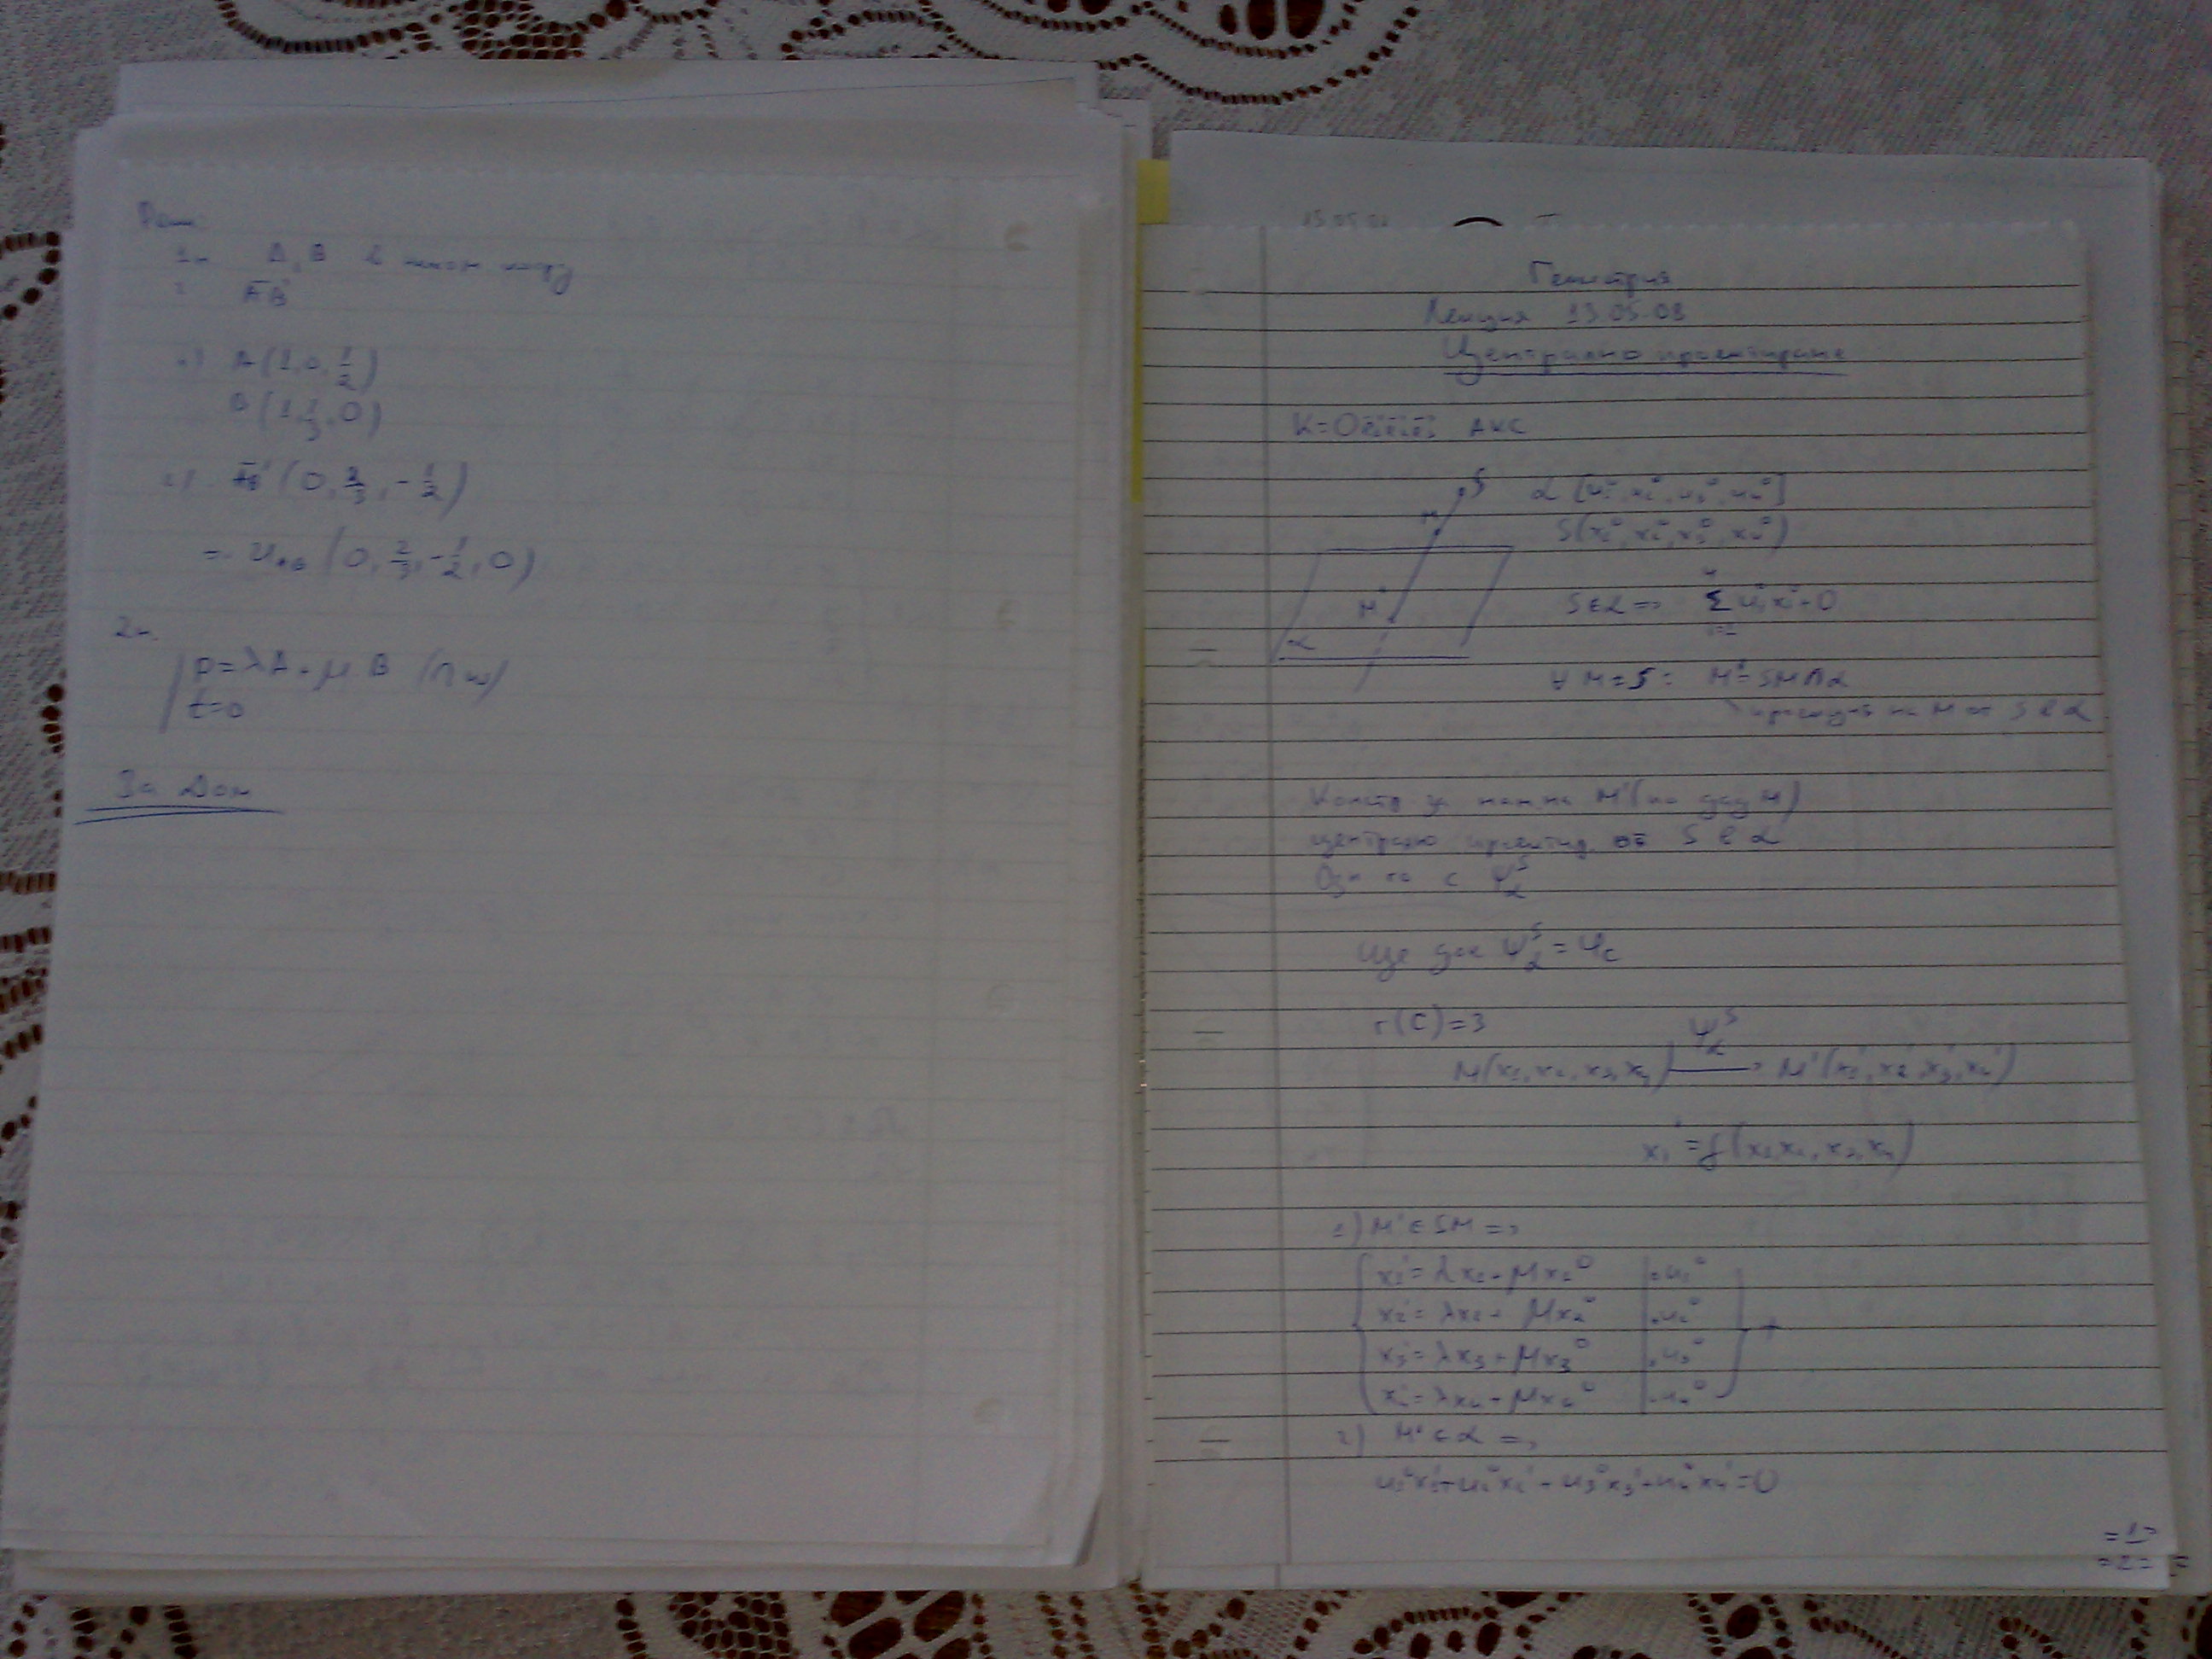 Реш.
1н. A, B в нехом. коорд
2. AB
1) A(1, 0, 1/2)
B(1, 2/3, 0)
2) AB (0, 2/3, -1/2)
=> U_AB (0, 2/3, -1/2, 0)
2н.
P = λA + μB
t=0
За Дом
13.05.08
Геометрия
Лекция 13.05.08
Централно проектиране
K=Oe₁e₂e₃ АКС
S α [u₁°, u₂°, u₃°, u₄°]
M S(x₁°, x₂°, x₃°, x₄°)
M' S∉α => Σ uᵢ°xᵢ° ≠ 0
α
∀ M≠S: M'=SM∩α
проекция на M от S в α
M' (по дад M)
централно проектир. от S в α
Озн. го с ψ_α^S
Ще док ψ_α^S = φ_C
r(C)=3
ψ_α^S
M(x₁, x₂, x₃, x₄) → M'(x₁', x₂', x₃', x₄')
xᵢ' = f(x₁, x₂, x₃, x₄)
1) M' ∈ SM =>
x₁' = λx₁ + μx₁° | .u₁°
x₂' = λx₂ + μx₂° | .u₂°
x₃' = λx₃ + μx₃° | .u₃° +
x₄' = λx₄ + μx₄° | .u₄°
2) M' ∈ α =>
u₁°x₁' + u₂°x₂' + u₃°x₃' + u₄°x₄' = 0
=1=
=2=